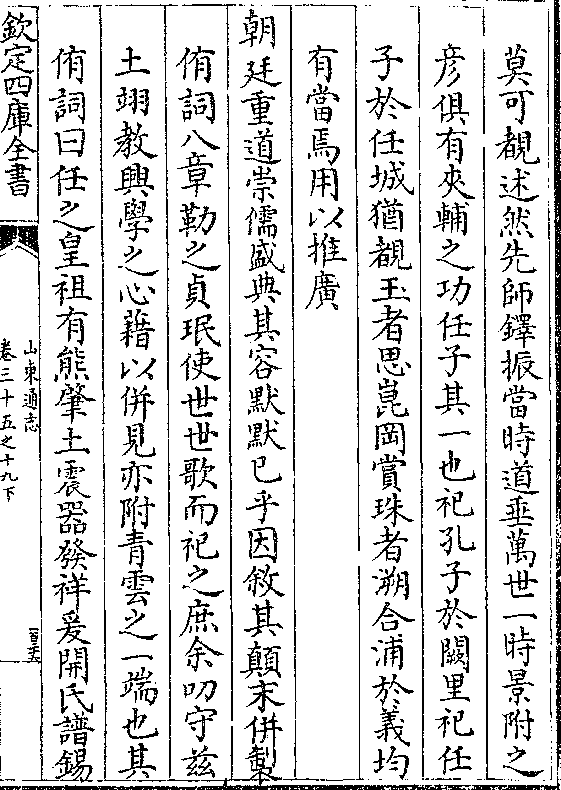 莫可覩述然先師鐸振當時道垂萬世一時景附之
彦俱有夾輔之功任子其一也祀孔子於闕里祀任
子於任城猶覩玉者思崑岡賞珠者溯合浦於義均
有當焉用以推廣
朝廷重道崇儒盛典其容默默已乎因敘其顛末併製
侑詞八章勒之貞珉使世世歌而祀之庶余叨守兹
土翊教興學之心藉以併見亦附青雲之一端也其
侑詞曰任之皇祖有熊肇土震器發祥爰開氏譜錫
欽定四庫全書
山東通志
卷三十五之十九下